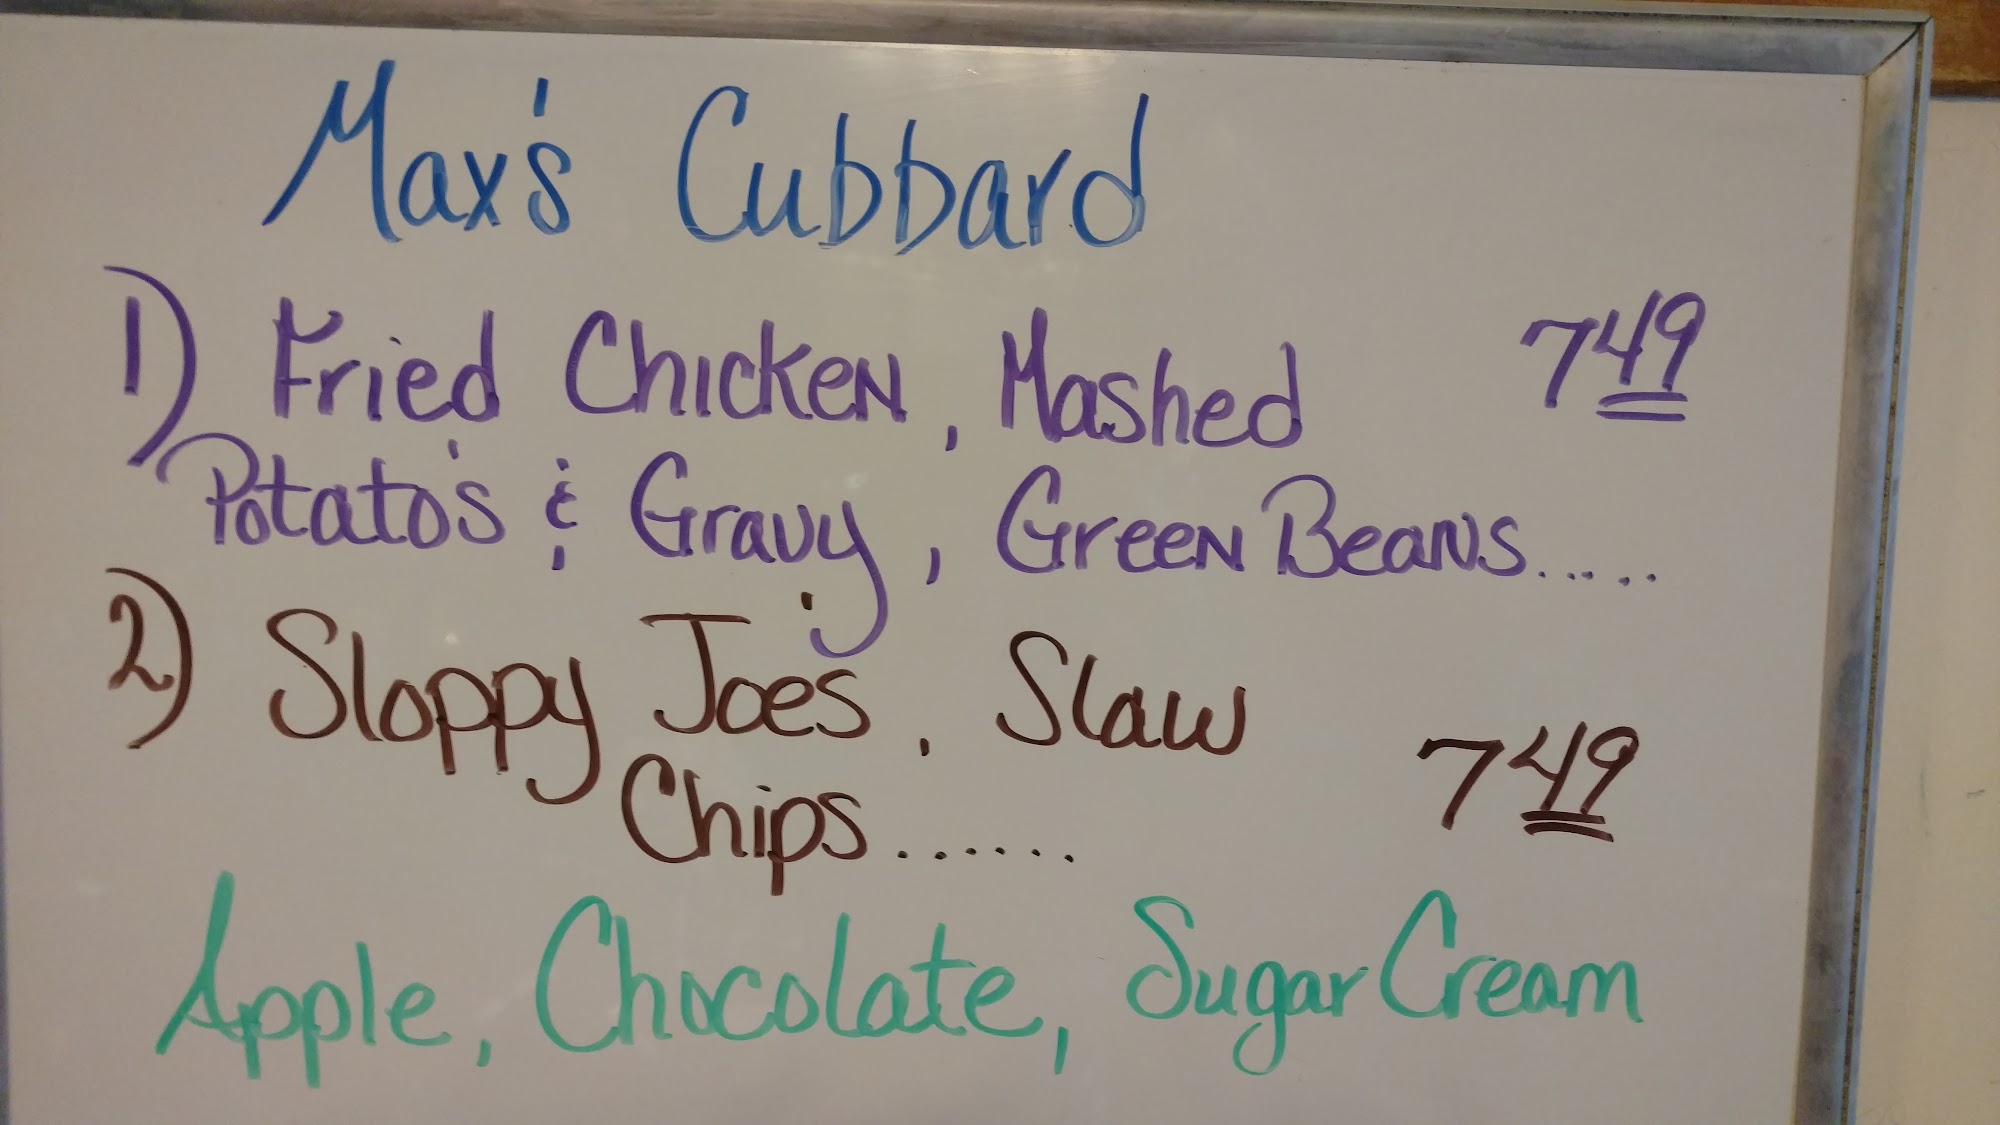 Max's Cubbard
1) Fried Chicken, Mashed 7 49
Potato's & Gravy, Green Beans.....
2) Sloppy Joes, Slaw
Chips...... 7 49
Apple, Chocolate, Sugar Cream